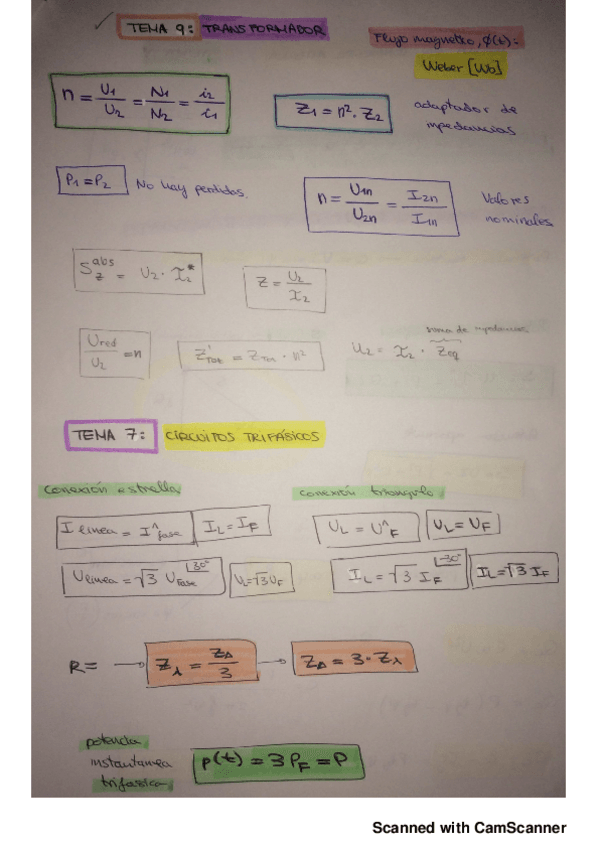 TEMA 9: TRANSFORMADOR
Flujo magnetico, Φ(t):
Weber [Wb]
n = U1/U2 = N1/N2 = i2/i1
Z1 = n². Z2
adaptador de
impedancias
P1 = P2 No hay perdidas.
n = U1n/U2n = I2n/I1n
Valores
nominales
S_Z^abs = U2 · I2*
Z = U2/I2
Ured/U2 = n
Z'Tot = ZTot · n²
suma de impedancias
U2 = I2 · Zeq
TEMA 7: CIRCUITOS TRIFÁSICOS
conexión estrella
conexión triangulo
I linea = I^fase
IL = IF
UL = U^F
UL = UF
U linea = √3 U Fase |30°
UL = √3 UF
IL = √3 IF |-30°
IL = √3 IF
R = → Zλ = ZΔ/3 → ZΔ = 3 · Zλ
potencia
instantanea
trifasica
p(t) = 3 PF = P
Scanned with CamScanner